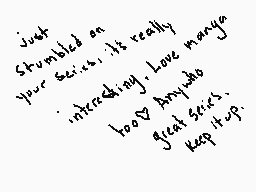 just
stumbled on
your series, it's really
interesting. Love manga
too♡ Anywho
great series.
keep it up.